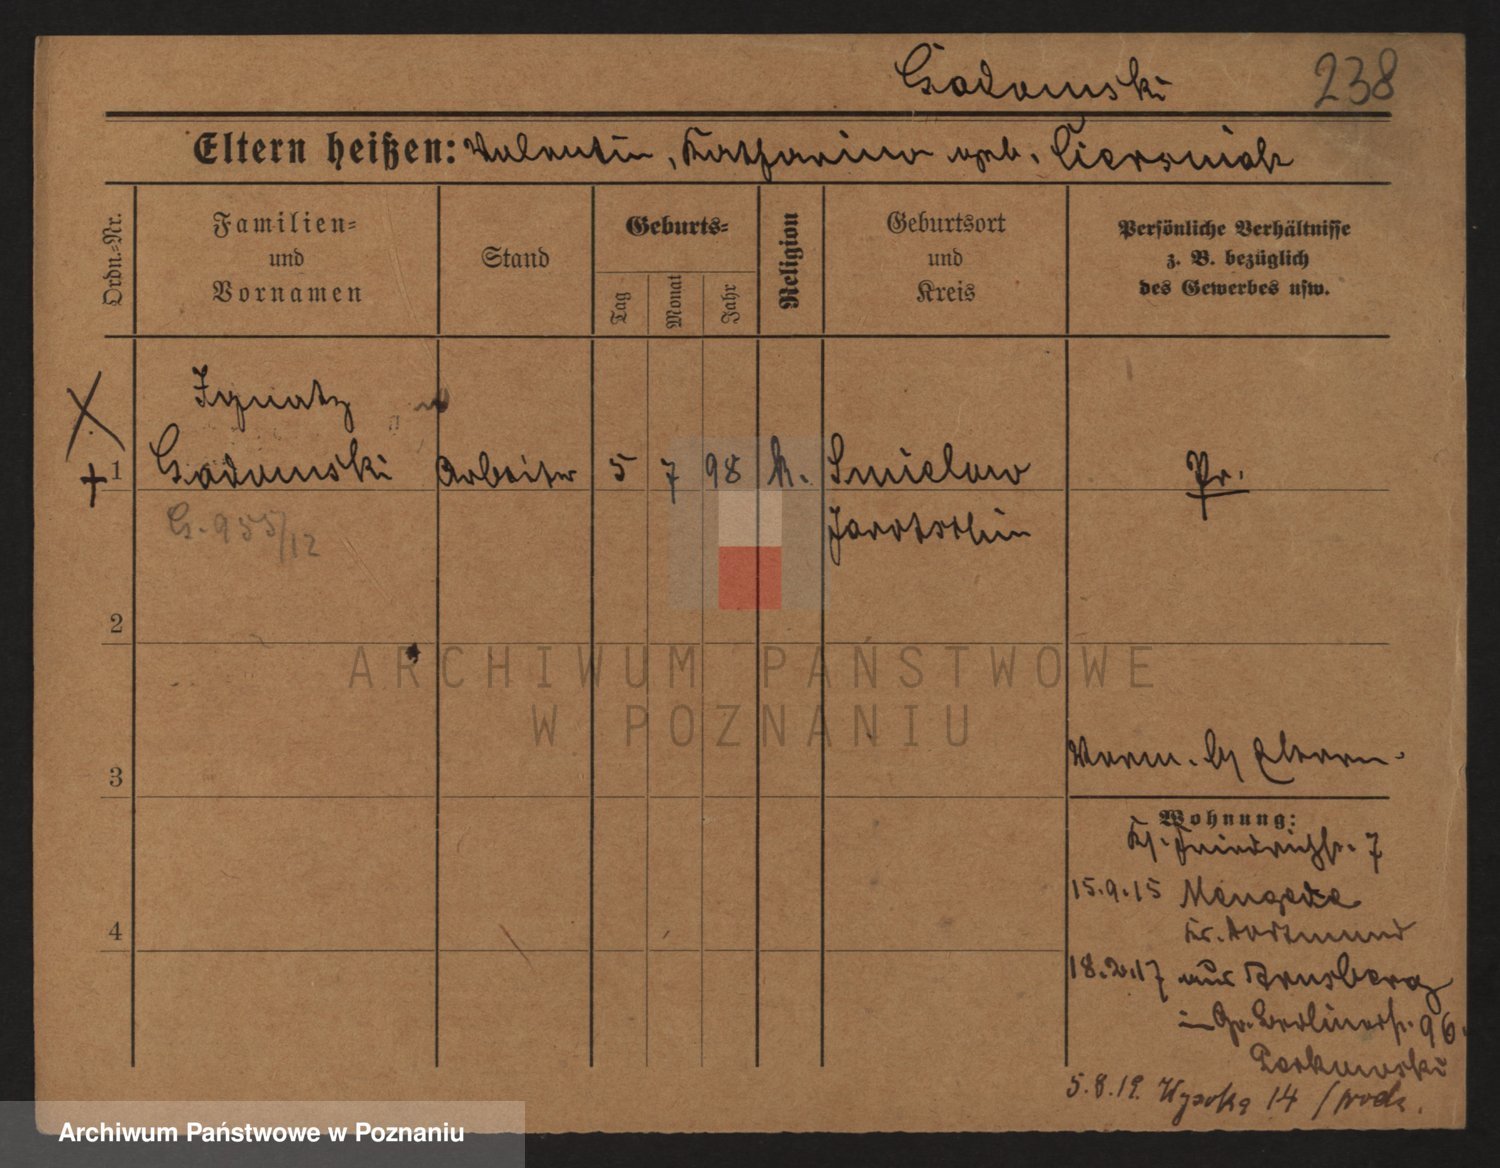 Gadomski 238
Eltern heißen: Valentin, Katharina geb. Ciesniak
Ordn.=Nr.
Familien=
und
Vornamen
Stand
Geburts=
Tag
Monat
Jahr
Religion
Geburtsort
und
Kreis
Persönliche Verhältnisse
z. B. bezüglich
des Gewerbes usw.
Ignatz
1 Gadomski Arbeiter 5 7 98 K. Smielow Pr.
G. 955/12 Jarotschin
2
3
Eltern
Wohnung:
Friedrichstr. 7
15.9.15 Mengede
Kr. Dortmund
4
18.2.17 aus Arnsberg
in Gr. Berlinerstr. 96.
5.8.19. Wysoka 14
ARCHIWUM PAŃSTWOWE
W POZNANIU
Archiwum Państwowe w Poznaniu